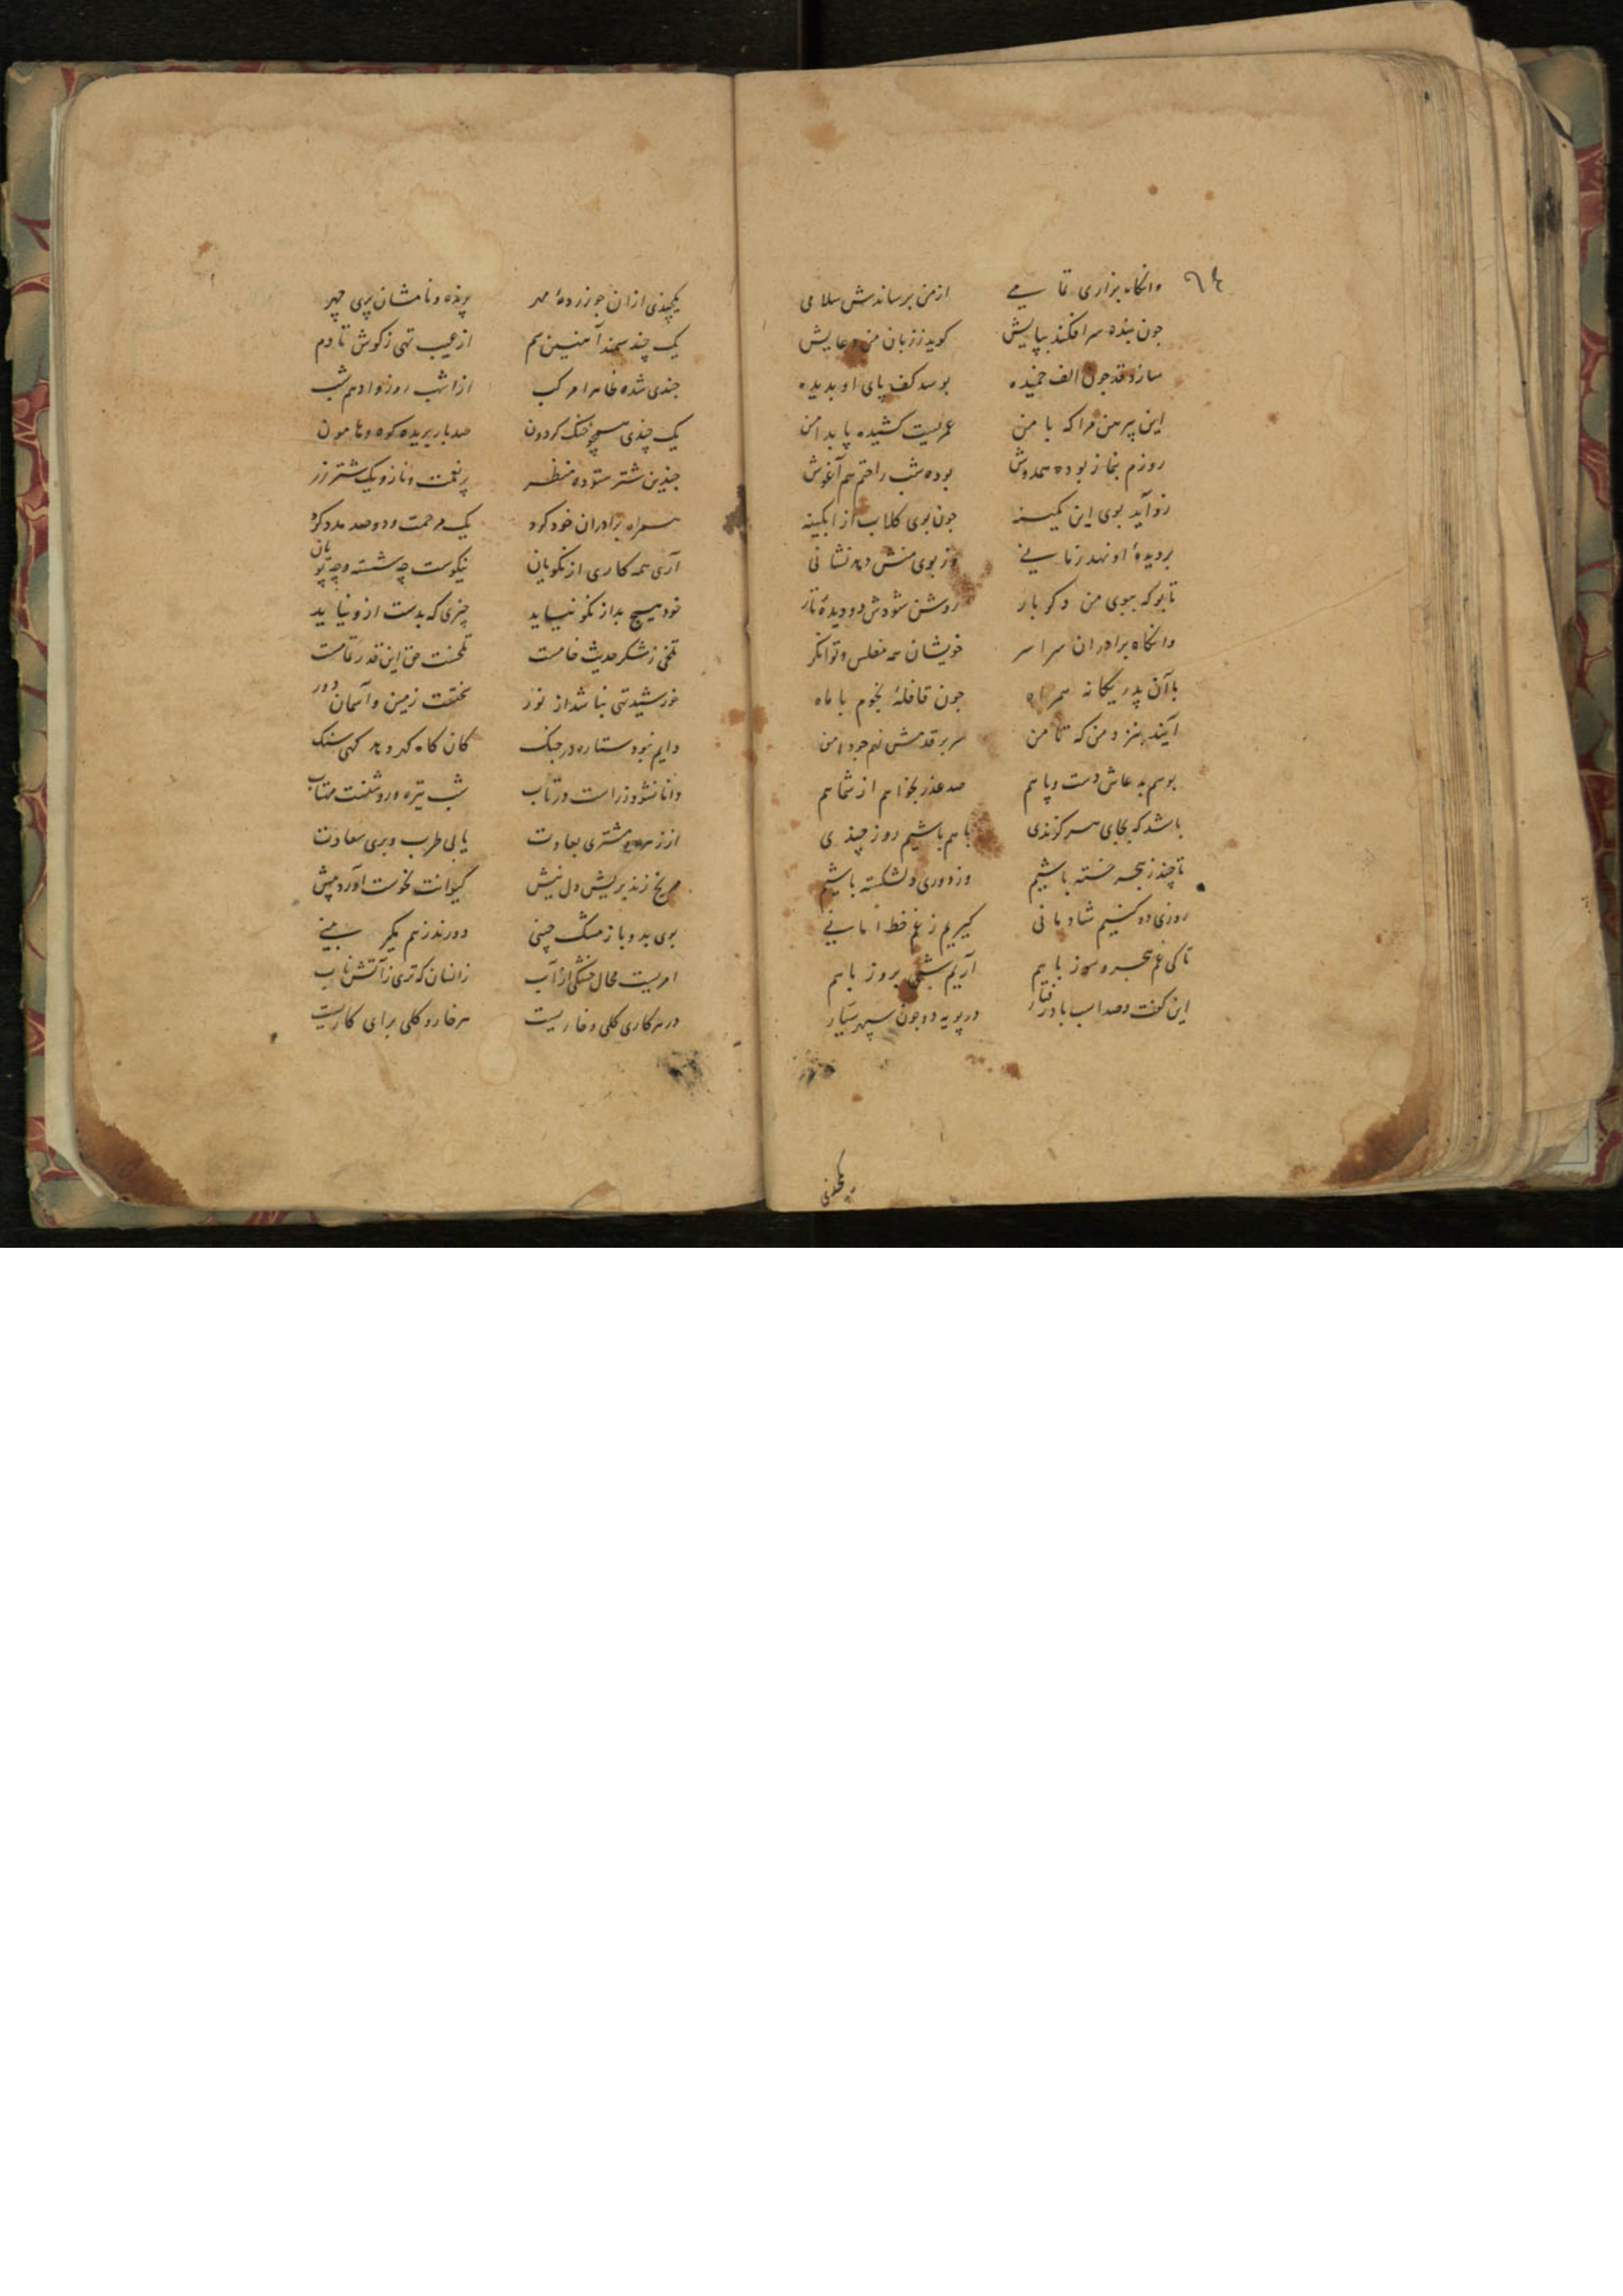 ٦٤
وانگاه بزاری تمامی از من برساندش سلامی
چون بنده سر افکند بپایش گوید ز زبان من دعایش
سازد قد چون الف خمیده بوسد کف پای او بدیده
این پیرهن مرا که با من عمریست کشیده پا بدامن
روزم بنماز بوده همدوش بوده شب راحتم هم آغوش
زو آید بوی این کمینه چون بوی گلاب از آبگینه
بر دیدهٔ او نهد زمانی وز بوی منش دهد نشانی
تا بو که ببوی من دگر بار روشن شودش دو دیدهٔ تار
وانگاه برادران سراسر خویشان همه مفلس و توانگر
با آن پدر یگانه همراه چون قافلهٔ نجوم با ماه
آیند بنزد من که تا من سر بر قدمش نهم چو دامن
بوسم بدعاش دست و پا هم صد عذر بخواهم از شما هم
باشد که بجای هر گزندی با هم باشیم روز چندی
تا چند ز هجر خسته باشیم وز دوری دلشکسته باشیم
روزی دو کنیم شادمانی گیریم ز غم خط امانی
تا کی غم هجر و سوز با هم آریم شبی بروز با هم
این گفت و صد اسب باد رفتار در پویه دو چون سپهر سیار
یکچندی
یکچندی ازان چو زردهٔ مهر پوینده و نامشان پری چهر
یک چند سمند آهنین سم از عیب تهی ز گوش تا دم
چندی شده ظاهرا مرکب از اشهب روز و ادهم شب
یک چندی همچو خنگ گردون صد بار بریده کوه و هامون
چندین شتر ستوده منظر پر نعمت و ناز و یک شتر زر
همراه برادران خود کرد یک مرحمت و دو صد مدد کرد
آری همه کاری از نکویان نیکوست چه شسته و چه پویان
خود هیچ بد از نکو نیاید چیزی که بدست ازو نیاید
تلخی ز شکر حدیث خامست تلخست حق این قدر تمامست
خورشید تهی نباشد از نور جفتست زمین و آسمان دور
دایم نبود ستاره در جنگ کان گاه گهر دهد گهی سنگ
دانا نشود ز راست در تاب شب تیره و روشنست مهتاب
از زهره و مشتری بعادت یابی طرب و بری سعادت
مریخ زند بریش دل نیش کیوانت نحوست آورد پیش
بوی بد و باز مشک چینی دورند ز هم مگر ببینی
امریست محال خشکی از آب زانسان که تری ز آتش ناب
در هر کاری گلی و خاریست هر خار و گلی برای کاریست